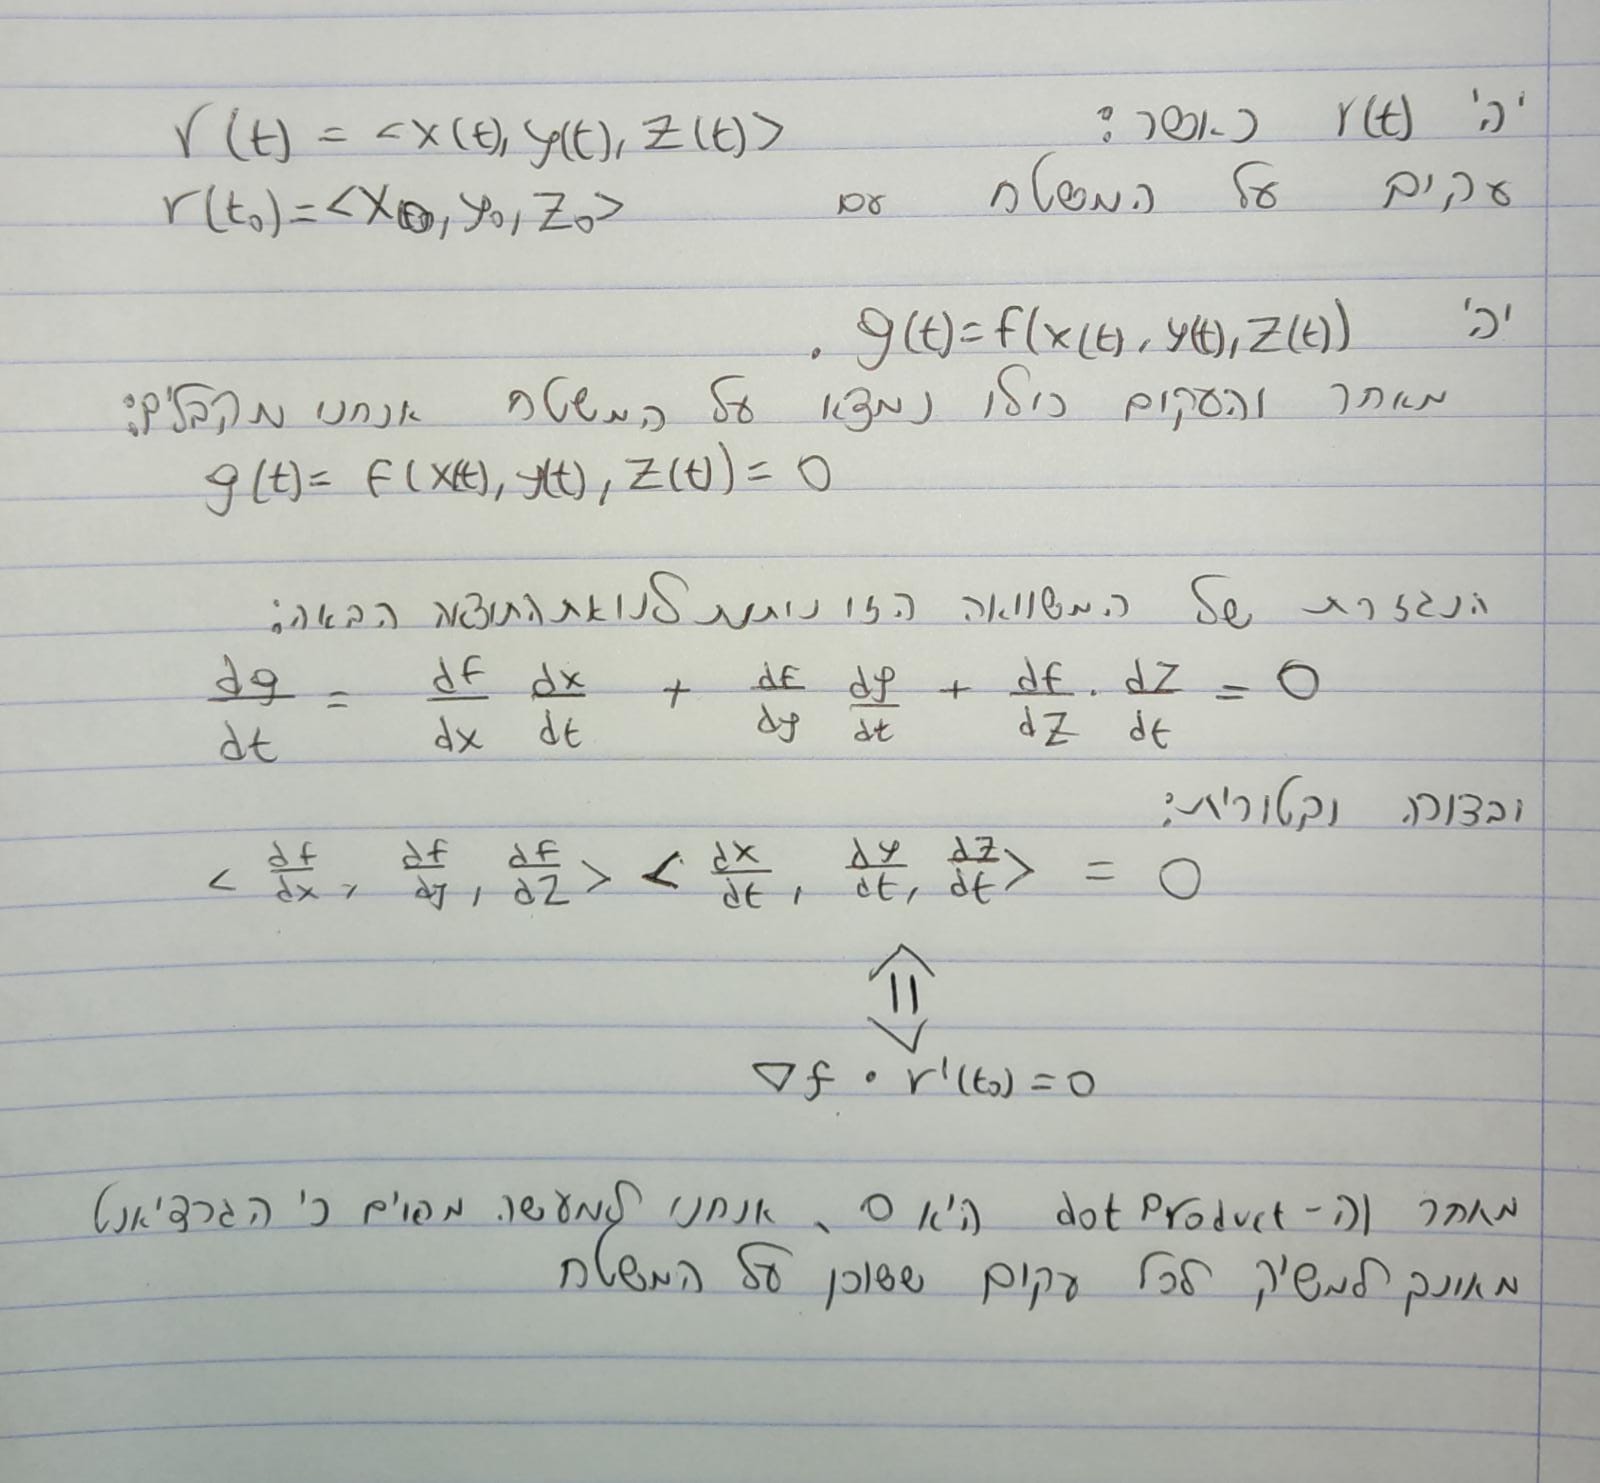 יהי r(t) כאשר: r(t) = <x(t), y(t), z(t)>
עקום על המשטח עם r(t₀)=<x₀, y₀, z₀>
יהי g(t)=f(x(t), y(t), z(t)).
מאחר והעקום כולו נמצא על המשטח אנחנו מקבלים:
g(t)= f(x(t), y(t), z(t))=0
הנגזרת של המשוואה הזו נותנת לנו את התוצאה הבאה:
dg/dt = df/dx dx/dt + df/dy dy/dt + df/dz · dz/dt = 0
ובצורה וקטורית:
< df/dx, df/dy, df/dz > < dx/dt, dy/dt, dz/dt > = 0
⇕
∇f · r'(t₀)=0
מאחר וה-dot product היא 0, אנחנו למעשה כי הגרדיאנט
מאונך למשיק לכל עקום ששוכן על המשטח